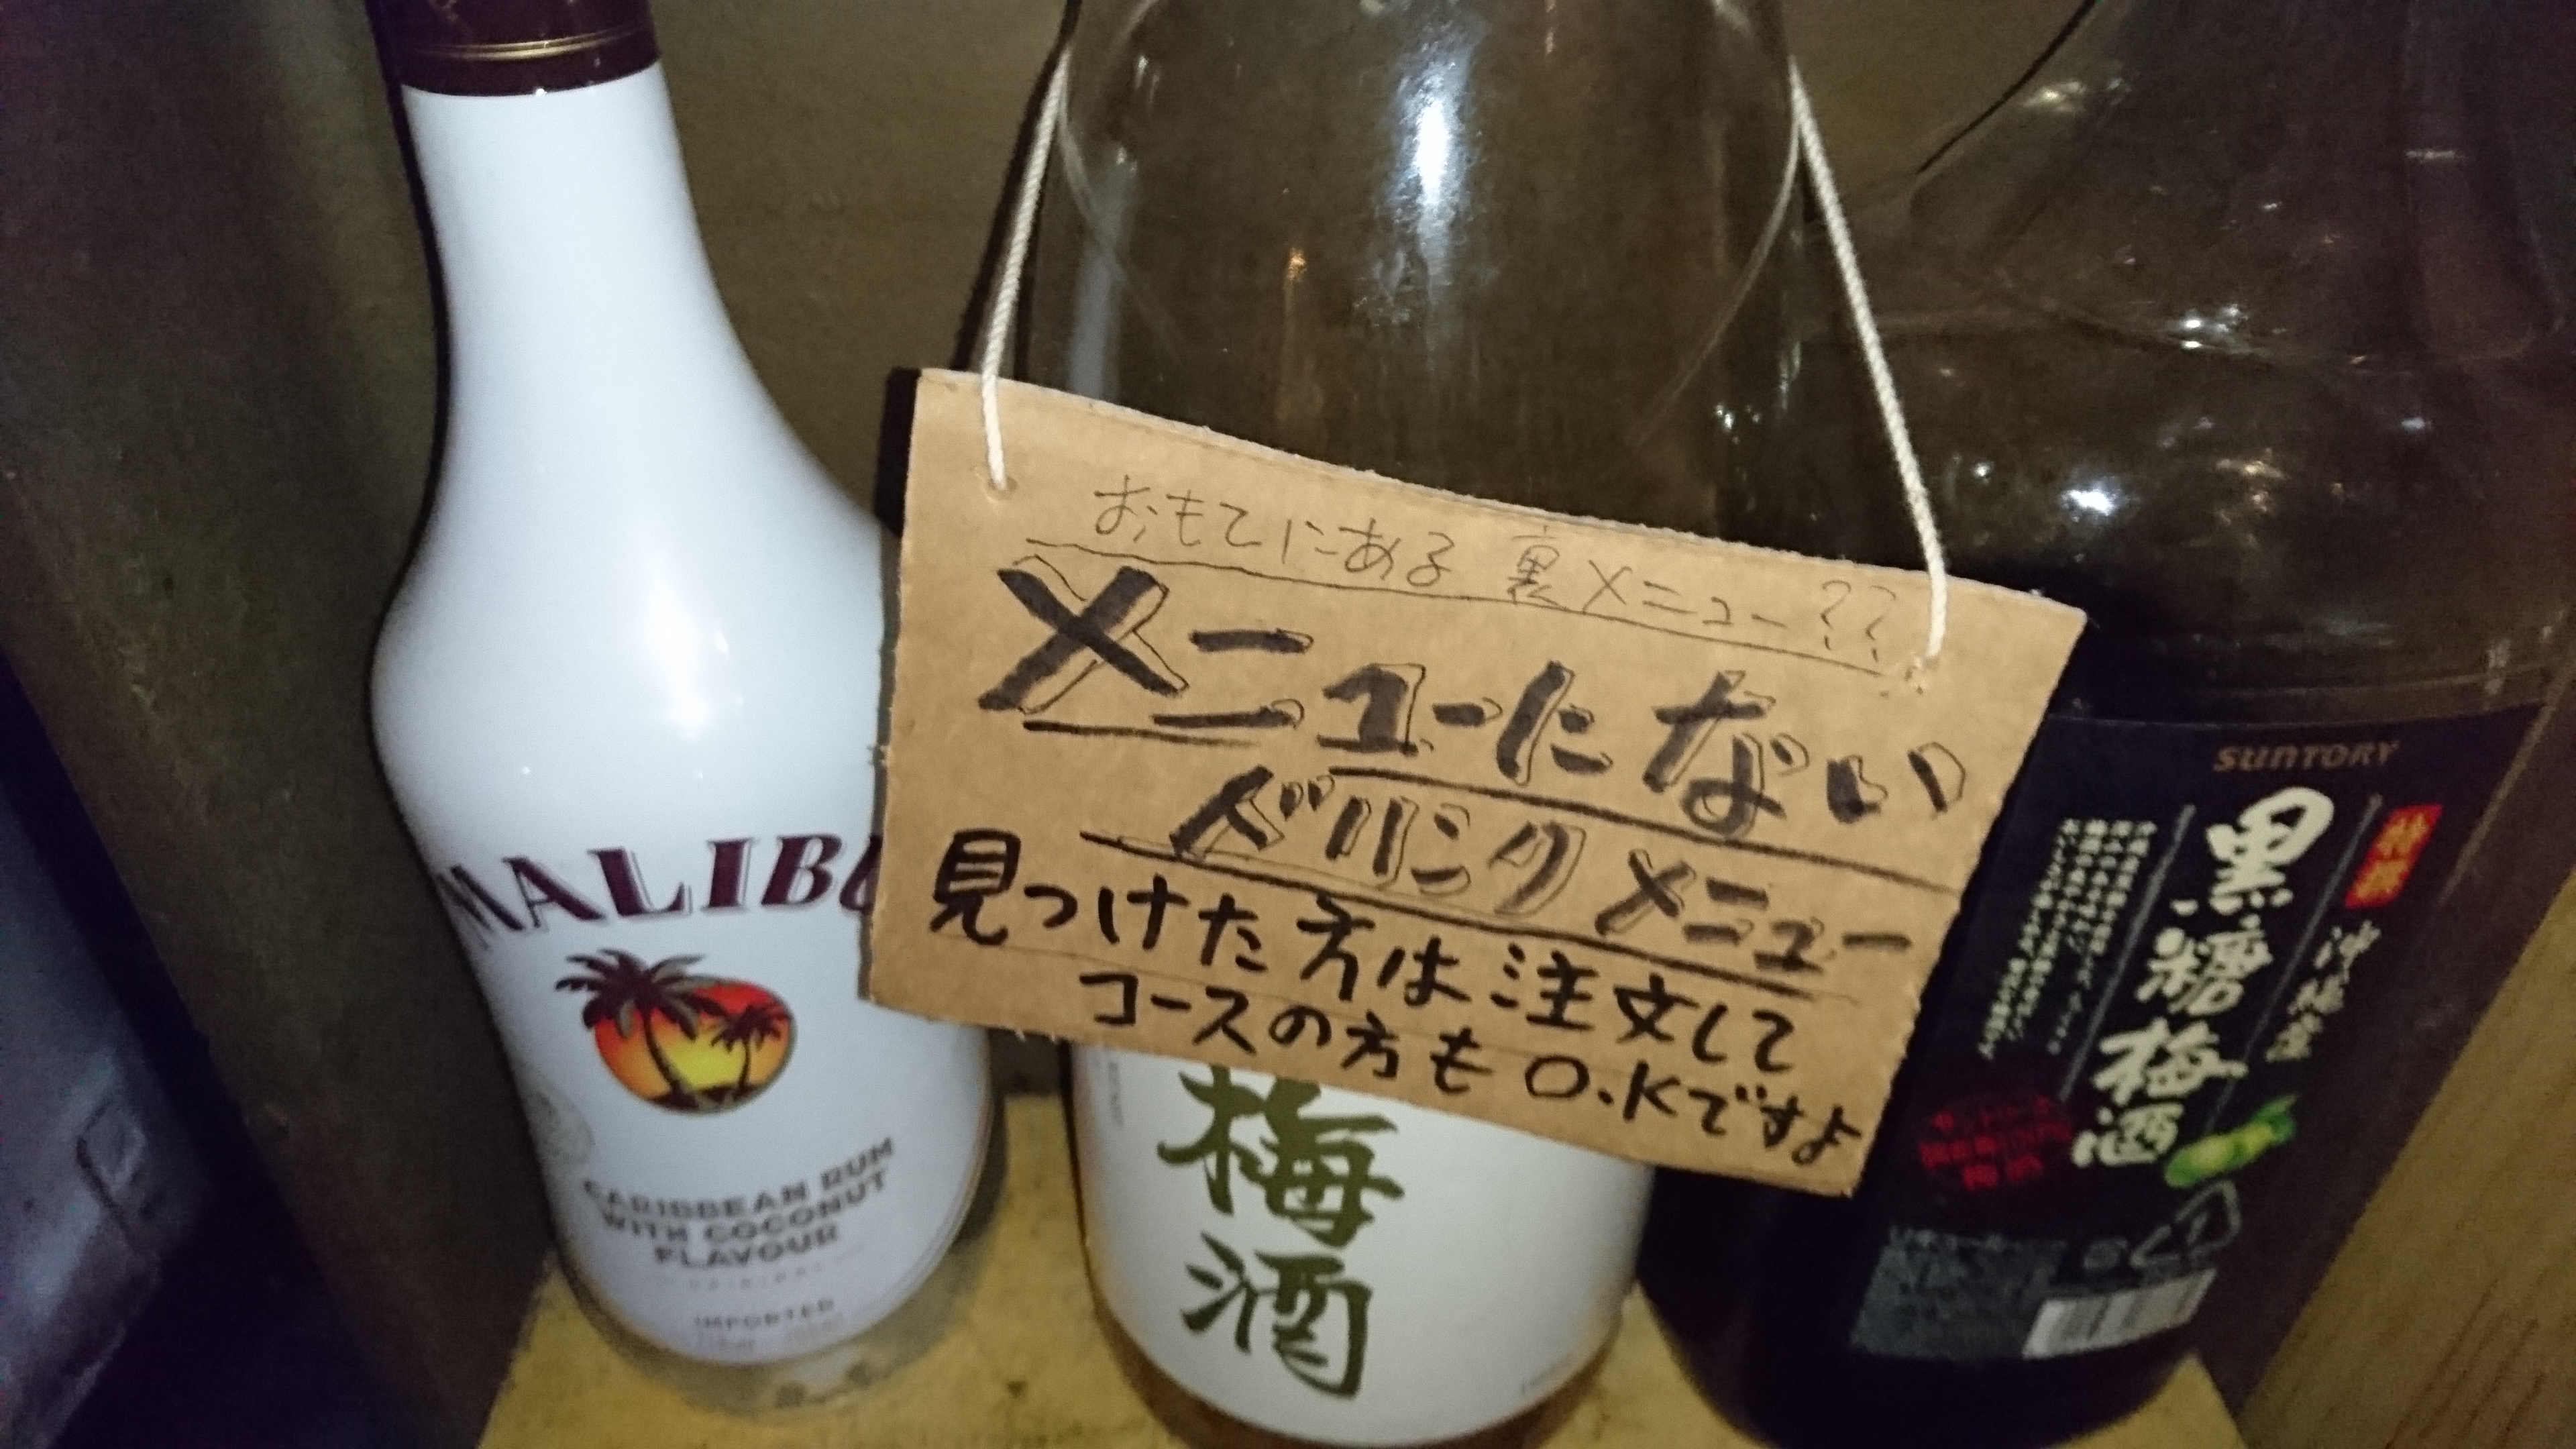 おもてにある裏メニュー??
メニューにない
ドリンクメニュー
見つけた方は注文して
コースの方もO.Kですよ
MALIBU
CARIBBEAN RUM
WITH COCONUT
FLAVOUR
ORIGINAL
IMPORTED
梅酒
SUNTORY
特撰
沖縄産
黒糖梅酒
リキュール